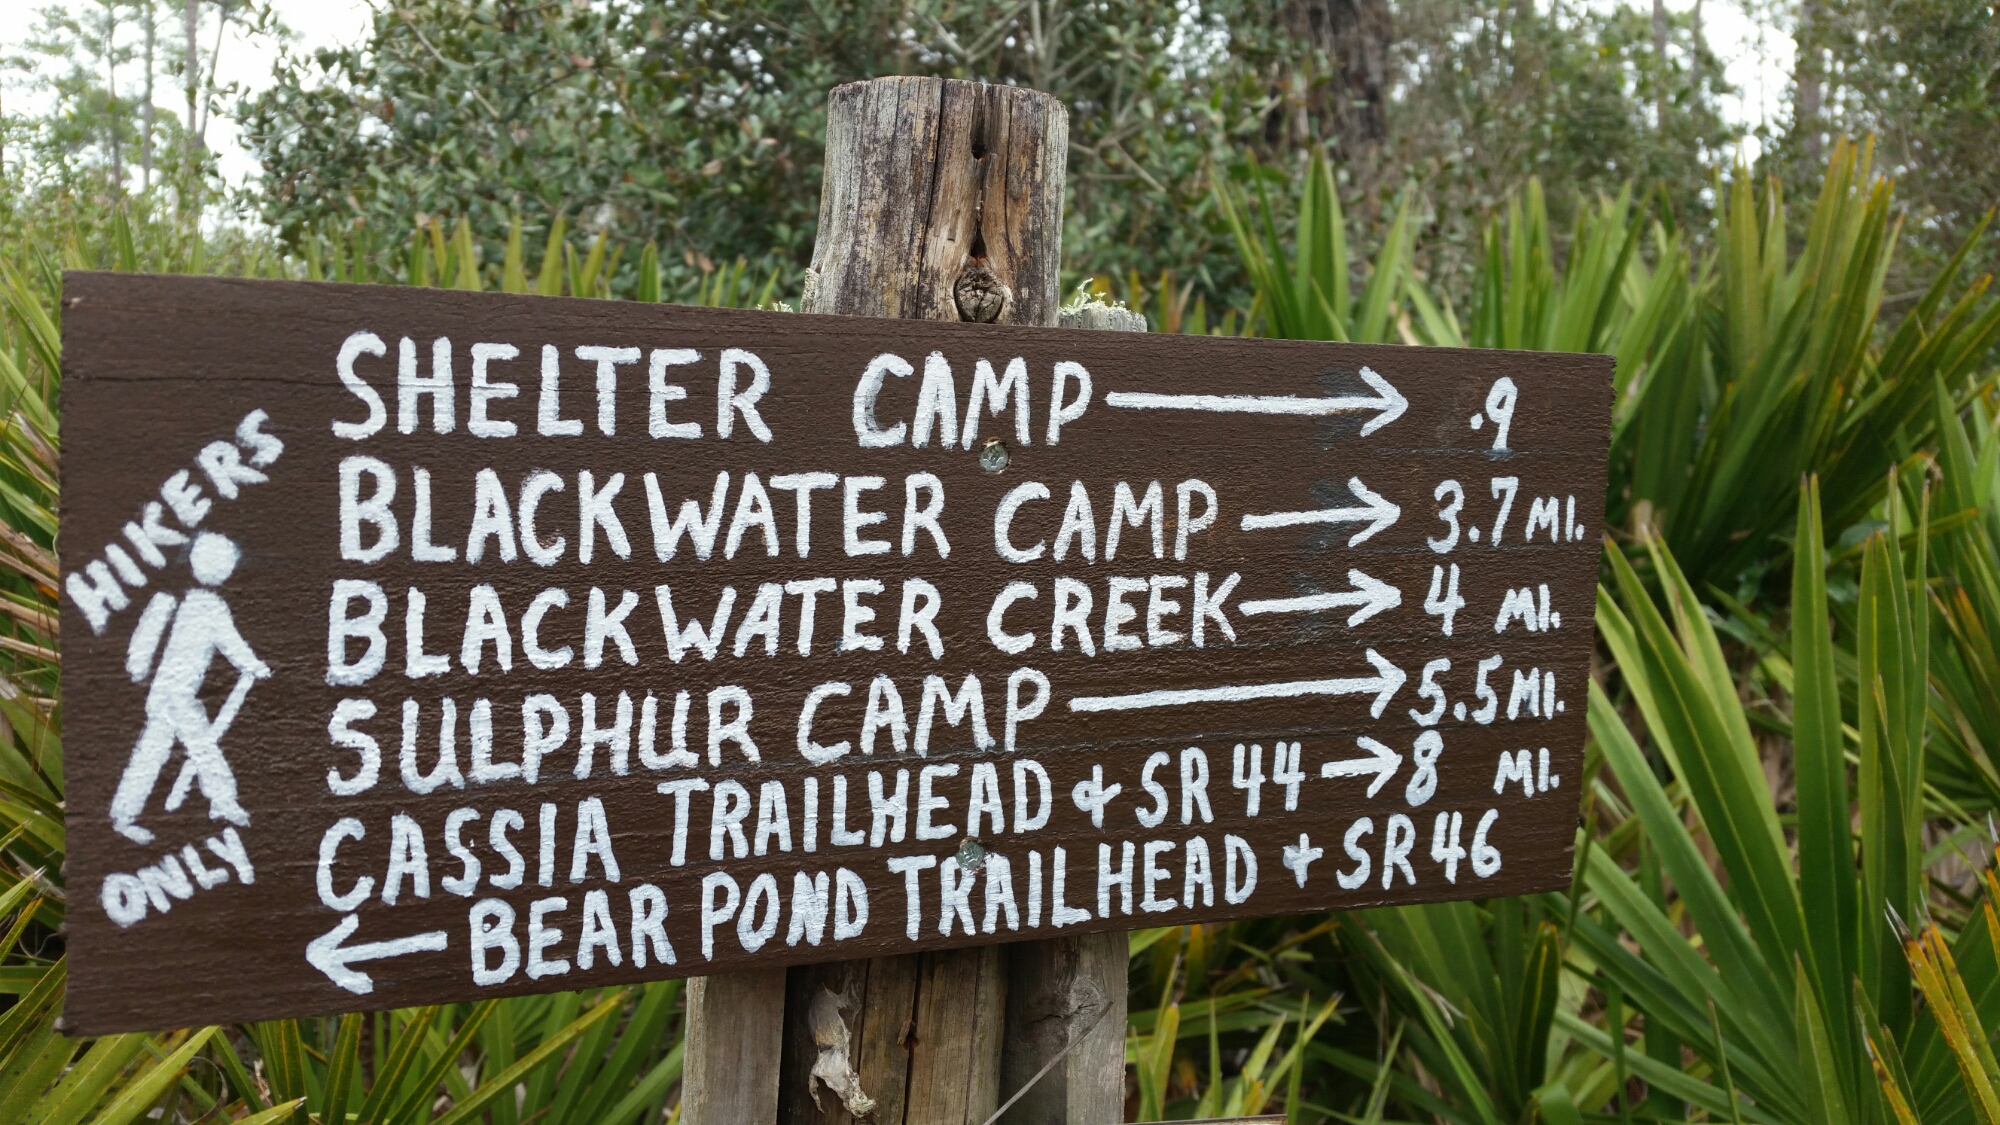 HIKERS
ONLY
SHELTER CAMP → .9
BLACKWATER CAMP → 3.7 MI.
BLACKWATER CREEK → 4 MI.
SULPHUR CAMP → 5.5 MI.
CASSIA TRAILHEAD & SR 44 → 8 MI.
← BEAR POND TRAILHEAD + SR 46